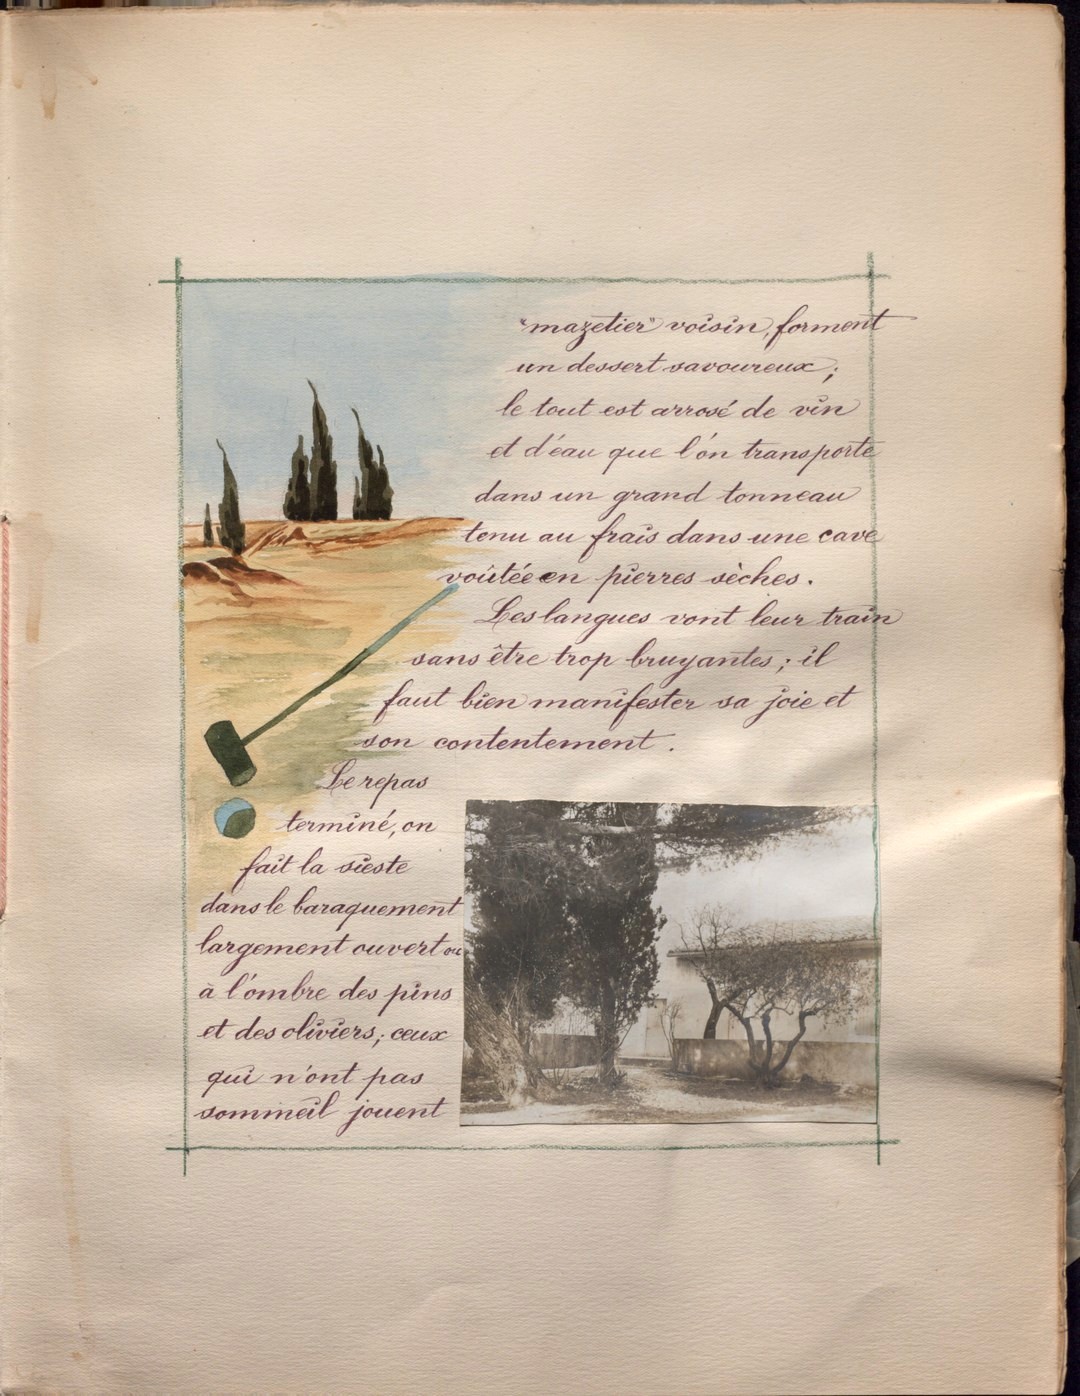 "mazetier" voisin, forment
un dessert savoureux ;
le tout est arrosé de vin
et d'eau que l'on transporte
dans un grand tonneau
tenu au frais dans une cave
voûtée en pierres sèches.
Les langues vont leur train
sans être trop bruyantes ; il
faut bien manifester sa joie et
son contentement.
Le repas
terminé, on
fait la sieste
dans le baraquement
largement ouvert ou
à l'ombre des pins
et des oliviers ; ceux
qui n'ont pas
sommeil jouent